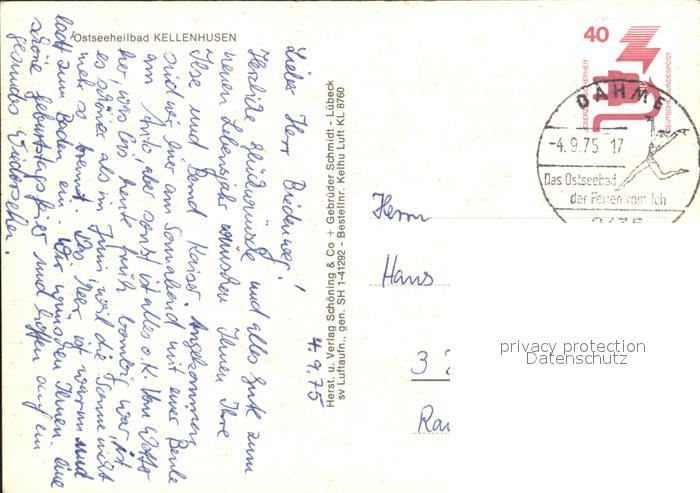 Ostseeheilbad KELLENHUSEN
4.9.75
Lieber Herr
Herzliche Glückwünsche und alles Gute zum
neuen Lebensjahr wünschen Ihnen Ihre
Ilse und Bernd Kaiser. Angekommen
sind wir hier am Sonnabend mit einer Beule
am Auto, aber sonst ist alles o.K. Vom Wetter
her, was bis heute früh ist
es schöner als im Juni, weil die Sonne nicht
mehr so brennt. Das Meer ist warm und
lädt zum Baden ein. Wir wünschen Ihnen eine
schöne Geburtstagsfeier und hoffen auf ein
gesundes Wiedersehen.
Herst. u. Verlag Schöning & Co + Gebrüder Schmidt - Lübeck
sv Luftaufn., gen. SH 1-41292 - Bestellnr. Kelhu Luft KL 8760
40
DEUTSCHE BUNDESPOST
DAHME
-4.9.75 17
Das Ostseebad
der Ferien vom Ich
2435
Herrn
Hans
3 2
privacy protection
Datenschutz